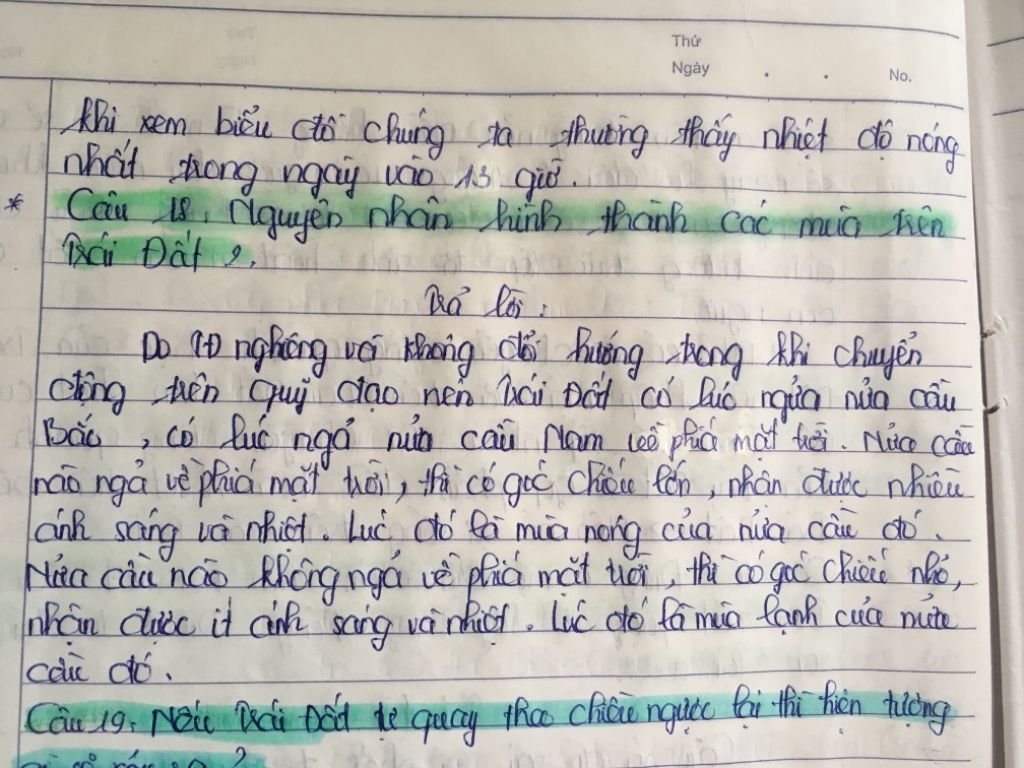 Thứ
Ngày . . No.
khi xem biểu đồ chúng ta thường thấy nhiệt độ nóng
nhất trong ngày vào 13 giờ.
* Câu 18. Nguyên nhân hình thành các mùa trên
Trái Đất ?.
Trả lời :
Do TĐ nghiêng và không đổi hướng trong khi chuyển
động trên quỹ đạo nên Trái Đất có lúc ngửa nửa cầu
Bắc, có lúc ngả nửa cầu Nam về phía mặt trời. Nửa cầu
nào ngả về phía mặt trời, thì có góc chiếu lớn, nhận được nhiều
ánh sáng và nhiệt. Lúc đó là mùa nóng của nửa cầu đó.
Nửa cầu nào không ngả về phía mặt trời, thì có góc chiếu nhỏ,
nhận được ít ánh sáng và nhiệt. Lúc đó là mùa lạnh của nửa
cầu đó.
Câu 19. Nếu Trái Đất tự quay theo chiều ngược lại thì hiện tượng